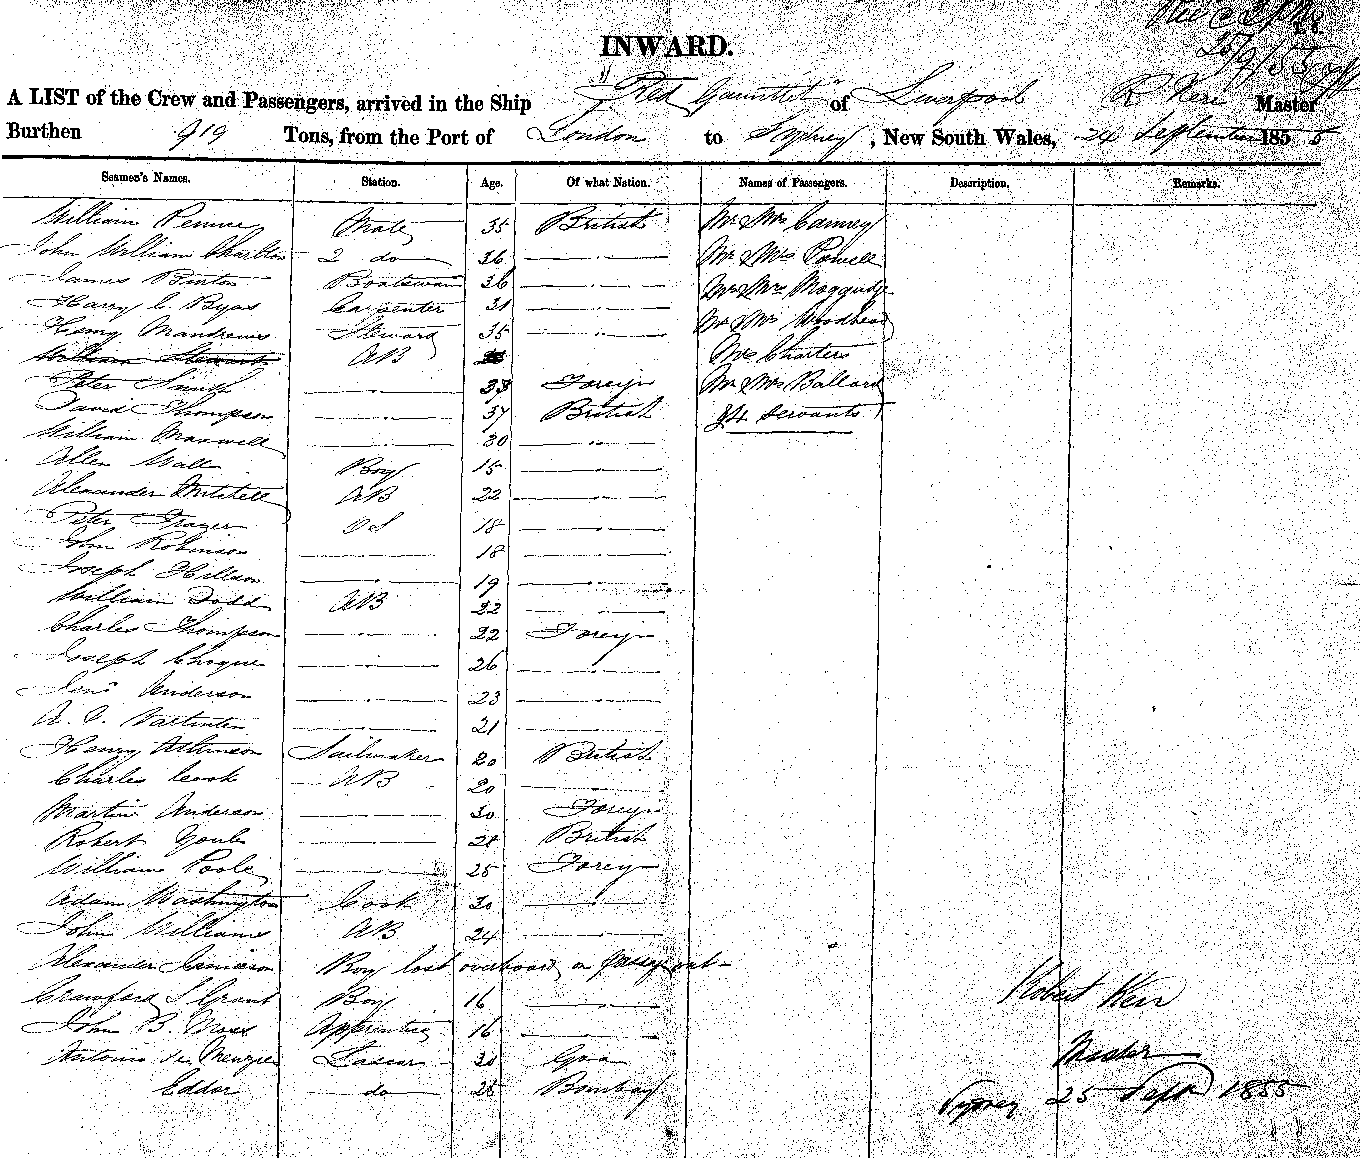 INWARD.
A LIST of the Crew and Passengers, arrived in the Ship "Red Gauntlet" of Liverpool R Kerr Master
Burthen 919 Tons, from the Port of London to Sydney, New South Wales, 24 September 1855
Seamen's Names. Station. Age. Of what Nation. Names of Passengers. Description. Remarks.
William Mate 35 British Mr & Mrs
John William Charlton 2 do 26 Mr & Mrs Powell
James Boatswain 36 Mr & Mrs
Harry C. Byas Carpenter 31 Mr & Mrs Woodhead
Henry Steward 35 Mrs Charters
William Stewart AB
Peter Foreign Mr & Mrs Ballard
David Thompson 37 British & 4 Servants
William Maxwell 30
Allen Wall Boy 15
Alexander Mitchell AB 22
Peter Frazer OS 18
John Robinson 18
Joseph 19
William Todd AB 22
Charles Thompson 22 Foreign
Joseph 26
Anderson 23
21
Henry Atkinson Sailmaker 20 British
Charles Cook AB 20
Martin Anderson 30 Foreign
Robert 28 British
William Poole 25 Foreign
Adam Washington Cook 30
John Williams AB 24
Alexander Jamieson Boy lost overboard on passage out
Crawford S Grant Boy 16
John B. Moss Apprentice 16
Antonio Lascar 30 Goa
do 28 Bombay
Robert Kerr
Master
Sydney 25 Sept 1855